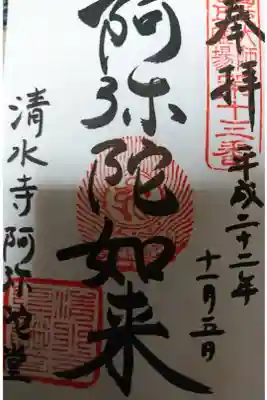 奉拝
平成二十二年
十一月五日
阿弥陀如来
清水寺阿弥陀堂